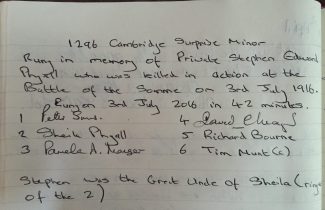 1296 Cambridge Surprise Minor
Rung in memory of Private Stephen Edward
Phyall who was killed in action at the
Battle of the Somme on 3rd July 1916.
Rung on 3rd July 2016 in 42 minutes.
1 Peter 4 David
2 Sheila Phyall 5 Richard Bourne
3 Pamela A. 6 Tim Munt (c)
Stephen was the Great Uncle of Sheila (ringer
of the 2)